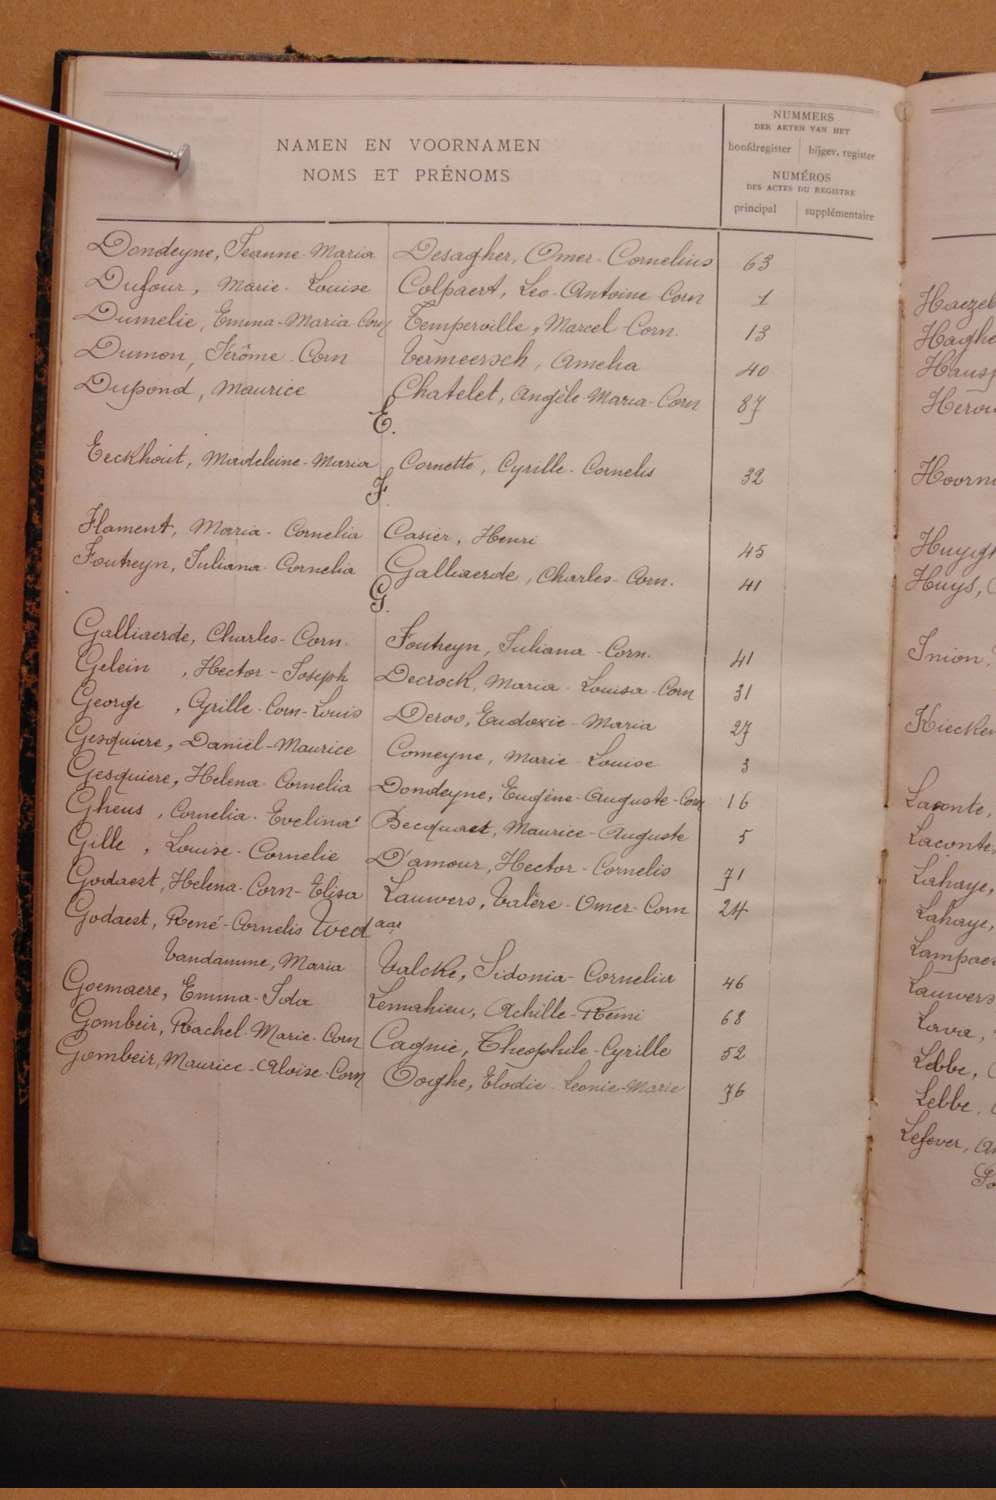 NAMEN EN VOORNAMEN
NOMS ET PRÉNOMS
NUMMERS
DER AKTEN VAN HET
hoofdregister bijgev. register
NUMÉROS
DES ACTES DU REGISTRE
principal supplémentaire
Dondeyne, Jeanne-Maria Desagher, Omer-Cornelius 63
Dufour, Marie-Louise Colpaert, Leo-Antoine Corn 1
Dumelie, Emma-Maria-Corn Temperville, Marcel-Corn. 13
Dumon, Jérôme-Corn Vermeersch, Amelia 40
Dupond, Maurice Chatelet, Angèle-Maria-Corn 87
E.
Eeckhout, Madeleine-Maria Cornette, Cyrille-Cornelis 32
F.
Flament, Maria-Cornelia Casier, Henri 45
Fouteyn, Juliana-Cornelia Galliaerde, Charles-Corn. 41
G.
Galliaerde, Charles-Corn. Fouteyn, Juliana-Corn. 41
Gelein, Hector-Joseph Decrock, Maria-Louisa-Corn 31
George, Cyrille-Corn-Louis Deroo, Eudoxie-Maria 27
Gesquiere, Daniël-Maurice Comeyne, Marie-Louise 3
Gesquiere, Helena-Cornelia Dondeyne, Eugène-Auguste-Corn 16
Gheus, Cornelia-Evelina Becquaet, Maurice-Auguste 5
Gille, Louise-Cornelie D'amour, Hector-Cornelis 71
Godaest, Helena-Corn-Elisa Lauwers, Valère-Omer-Corn 24
Godaest, René-Cornelis Wed aar
Vandamme, Maria Valcke, Sidonia-Cornelia 46
Goemaere, Emma-Ida Lemahieu, Achille-Rémi 68
Gombeir, Rachel-Marie-Corn Cagnie, Theophile-Cyrille 52
Gombeir, Maurice-Aloise-Corn Ooghe, Elodie-Leonie-Marie 76
Huys,
Inion,
Laconte,
Laconte,
Lahaye,
Lahaye,
Lauwers
Lava,
Lebbe,
Lebbe,
Lefever,